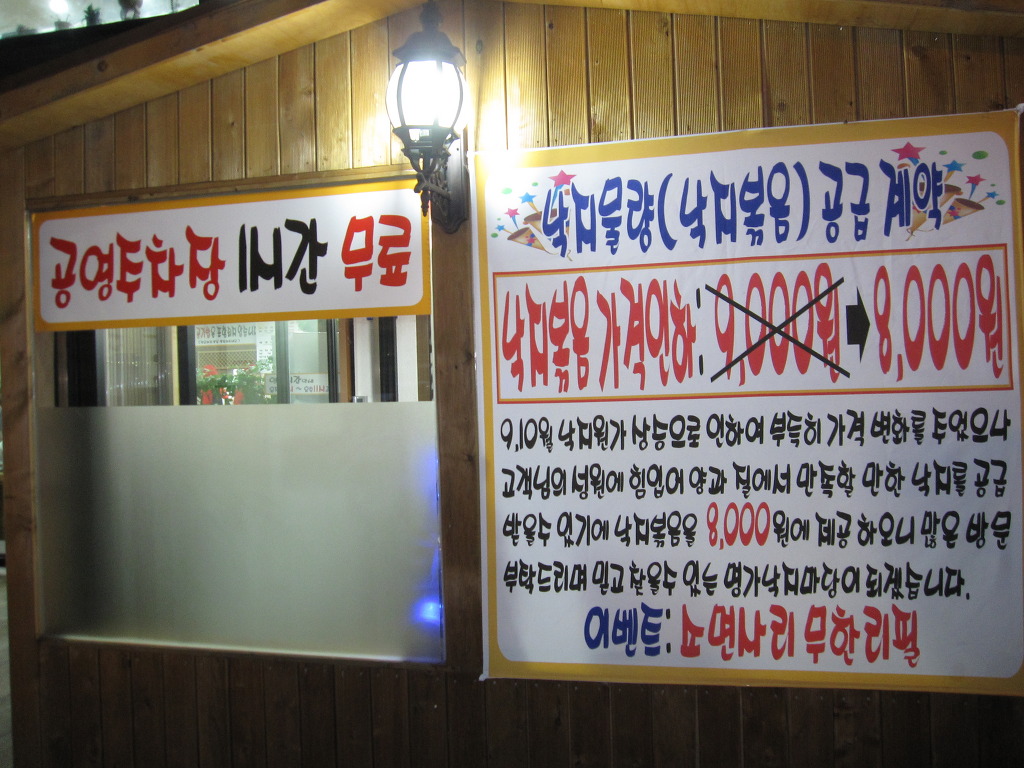 공영주차장 1시간 무료
낙지물량(낙지볶음) 공급 계약
낙지볶음 가격인하: 9,000원 → 8,000원
9,10월 낙지원가 상승으로 인하여 부득히 가격 변화를 주었으나
고객님의 성원에 힘입어 양과 질에서 만족할 만한 낙지를 공급
받을수 있기에 낙지볶음을 8,000원에 제공 하오니 많은 방문
부탁드리며 믿고 찾을수 있는 명가낙지마당이 되겠습니다.
이벤트: 소면사리 무한리필